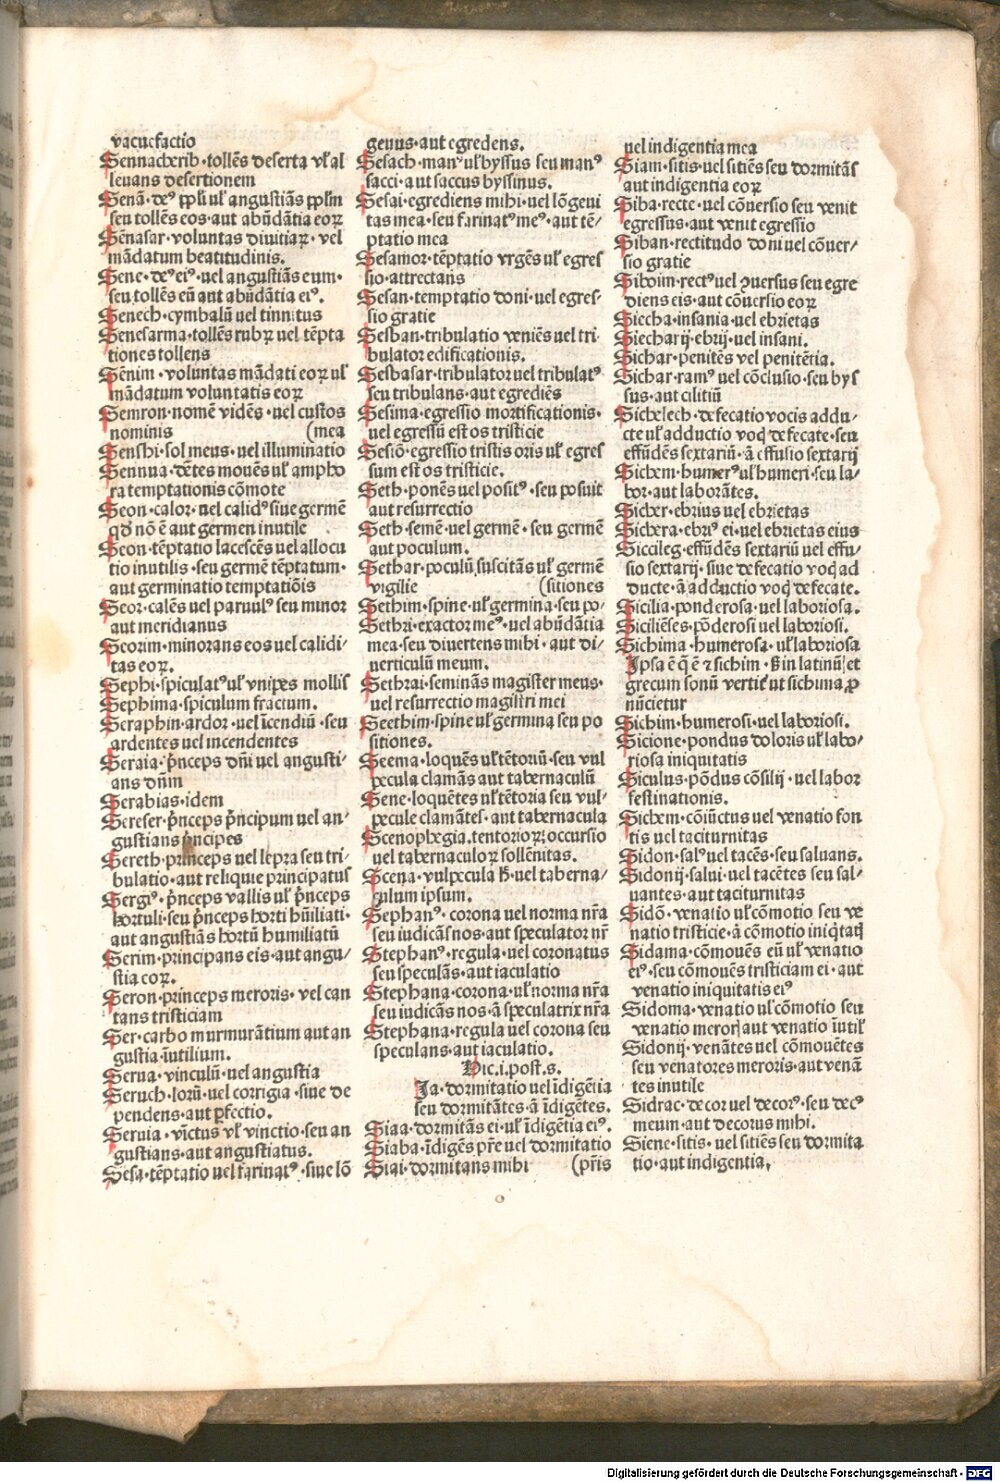 vacuefactio
Sennacherib·tollēs deserta vl̕ al
leuans desertionem
Senā·deꝰ ppl̕i ul̕ angustiās ppl̕m
seu tollēs eos·aut abūdātia eoꝝ
Sēnasar·voluntas diuitiaꝝ·vel
mādatum beatitudinis.
Sene·deꝰ eiꝰ·uel angustiās eum·
seu tollēs eū aut abūdātia eiꝰ.
Senech·cymbalū uel tinnitus
Senesarma·tollēs rubꝝ uel tēpta
tiones tollens
Sēnim·voluntas mādati eoꝝ ul̕
mādatum voluntatis eoꝝ
Semron·nomē vidēs·uel custos
nominis (mea
Senshi·sol meus·uel illuminatio
Sennua·dētes mouēs ul̕ ampho
ra temptationis cōmote
Seon·calor·uel calidꝰ siue germē
qd̕ nō ē aut germen inutile
Seon·tēptatio lacescēs uel allocu
tio inutilis·seu germē tēptatum·
aut germinatio temptatiōis
Seor·calēs uel paruulꝰ seu minor
aut meridianus
Seorim·minorans eos uel calidi/
tas eoꝝ.
Sephi·spiculatꝰ ul̕ vnipes mollis
Sephima·spiculum fractum.
Seraphin·ardor·uel īcendiū·seu
ardentes uel incendentes
Seraia·p̄nceps dn̄i uel angusti/
ans dn̄m
Serabias·idem
Sereser·p̄nceps p̄ncipum uel an/
gustians p̄ncipes
Sereth·princeps uel lepra seu tri/
bulatio·aut reliquie principatus
Sergiꝰ·p̄nceps vallis ul̕ p̄nceps
hortuli·seu p̄nceps horti hūiliati·
aut angustiās hortū humiliatū
Serim·principans eis·aut angu/
stia eoꝝ.
Seron·princeps meroris·vel can
tans tristiciam
Ser·carbo murmurātium aut an
gustia īutilium.
Serua·vinculū·uel angustia
Seruch·lorū·uel corrigia·siue de
pendens·aut ꝑfectio.
Seruia·vīctus vl̕ vinctio·seu an
gustians·aut angustiatus.
Sesa·tēptatio uel farinatꝰ·siue lō
geuus·aut egredens.
Sesach·manꝰ ul̕ byssus seu manꝰ
sacci·aut saccus byssinus.
Sesai·egrediens mihi·uel lōgeui
tas mea·seu farinatꝰ meꝰ·aut tē/
ptatio mea
Sesamor·tēptatio vrgēs ul̕ egres
sio·attrectans
Sesan·temptatio doni·uel egres/
sio gratie
Sesban·tribulatio veniēs uel tri
bulator edificationis.
Sesbasar·tribulator uel tribulatꝰ
seu tribulans·aut egrediēs
Sesima·egressio mortificationis·
uel egressū est os tristicie
Sesiō·egressio tristis oris ul̕ egres
sum est os tristicie.
Seth·ponēs uel positꝰ·seu posuit
aut resurrectio
Seth·semē·uel germē·seu germē
aut poculum.
Sethar·poculū suscitās ul̕ germē
vigilie (sitiones
Sethim·spine·ul̕ germina·seu po/
Sethri·exactor meꝰ·uel abūdātia
mea·seu diuertens mihi·aut di/
uerticulū meum.
Sethrai·seminās magister meus·
uel resurrectio magistri mei
Seethim·spine ul̕ germina seu po
sitiones.
Seema·loquēs ul̕ tētoriū·seu vul
pecula clamās aut tabernaculū
Sene·loquētes ul̕ tētoria seu vul/
pecule clamātes·aut tabernacula
Scenophegia.tentorioꝝ occursio
uel tabernaculoꝝ sollēnitas.
Scena·vulpecula ẜ·uel taberna/
culum ipsum.
Sephanꝰ·corona uel norma nr̄a
seu iudicās nos·aut speculator nr̄
Stephanꝰ.regula·uel coronatus
seu speculās·aut iaculatio
Stephana·corona·ul̕ norma nr̄a
seu iudicās nos·ā speculatrix nr̄a
Stephana·regula uel corona seu
speculans·aut iaculatio.
Hic.i.post.s.
Ia·dormitatio uel īdigētia
seu dormitātes·ā īdigētes.
Siaa·dormitās ei·ul̕ īdigētia eiꝰ.
Siaba·īdigēs pr̄e uel dormitatio
Siai·dormitans mihi (pr̄is
uel indigentia mea
Siam·sitis·uel sitiēs seu dormitās
aut indigentia eoꝝ
Siba·recte·uel cōuersio seu venit
egressus·aut venit egressio
Siban·rectitudo doni uel cōuer/
sio gratie
Siboim·rectꝰ uel ꝯuersus seu egre
diens eis·aut cōuersio eoꝝ
Siccha·insania·uel ebrietas
Siecharij·ebrij·uel insani.
Sichar·penitēs vel penitētia.
Sichar·ramꝰ uel cōclusio·seu bys
sus·aut ciliciū
Sichelech·defecatio vocis addu/
cte ul̕ adductio vocꝭ defecate·seu
effūdēs sextariū·ā effusio sextarij
Sichem·humerꝰ ul̕ humeri·seu la/
bor·aut laborātes.
Sicher·ebrius uel ebrietas
Sichera·ebriꝰ ei·uel ebrietas eius
Siccileg·effūdēs sextariū uel effu/
sio sextarij·siue defecatio vocꝭ ad
ducte·ā adductio vocꝭ defecate.
Sicilia·ponderosa·uel laboriosa.
Siciliēses·pōderosi uel laboriosi.
Sichima·humerosa·ul̕ laboriosa
Ipsa ē q̄ ē ⁊ sichim·ẜ in latinū ⁊
grecum sonū vertit̕ ut sichima ꝓ
nūcietur
Sichim·humerosi·uel laboriosi.
Sicione·pondus doloris ul̕ labo/
riosa iniquitatis
Siculus·pōdus cōsilij·uel labor
festinationis.
Sichem·cōiūctus uel venatio fon
tis uel taciturnitas
Sidon·salꝰ uel tacēs·seu saluans.
Sidonij·salui·uel tacētes seu sal/
uantes·aut taciturnitas
Sidō·venatio ul̕ cōmotio seu ve
natio tristicie·ā cōmotio iniqͥtatꝭ
Sidama·cōmouēs eū ul̕ venatio
eiꝰ·seu cōmouēs tristiciam ei·aut
venatio iniquitatis eiꝰ
Sidoma·venatio ul̕ cōmotio seu
venatio merorꝭ aut venatio īutil̕
Sidonij·venātes uel cōmouētes
seu venatores meroris·aut venā
tes inutile
Sidrac·decor uel decorꝰ·seu decꝰ
meum·aut decorus mihi.
Siene·sitis·uel sitiēs seu dormita
tio·aut indigentia,
Digitalisierung gefördert durch die Deutsche Forschungsgemeinschaft - DFG